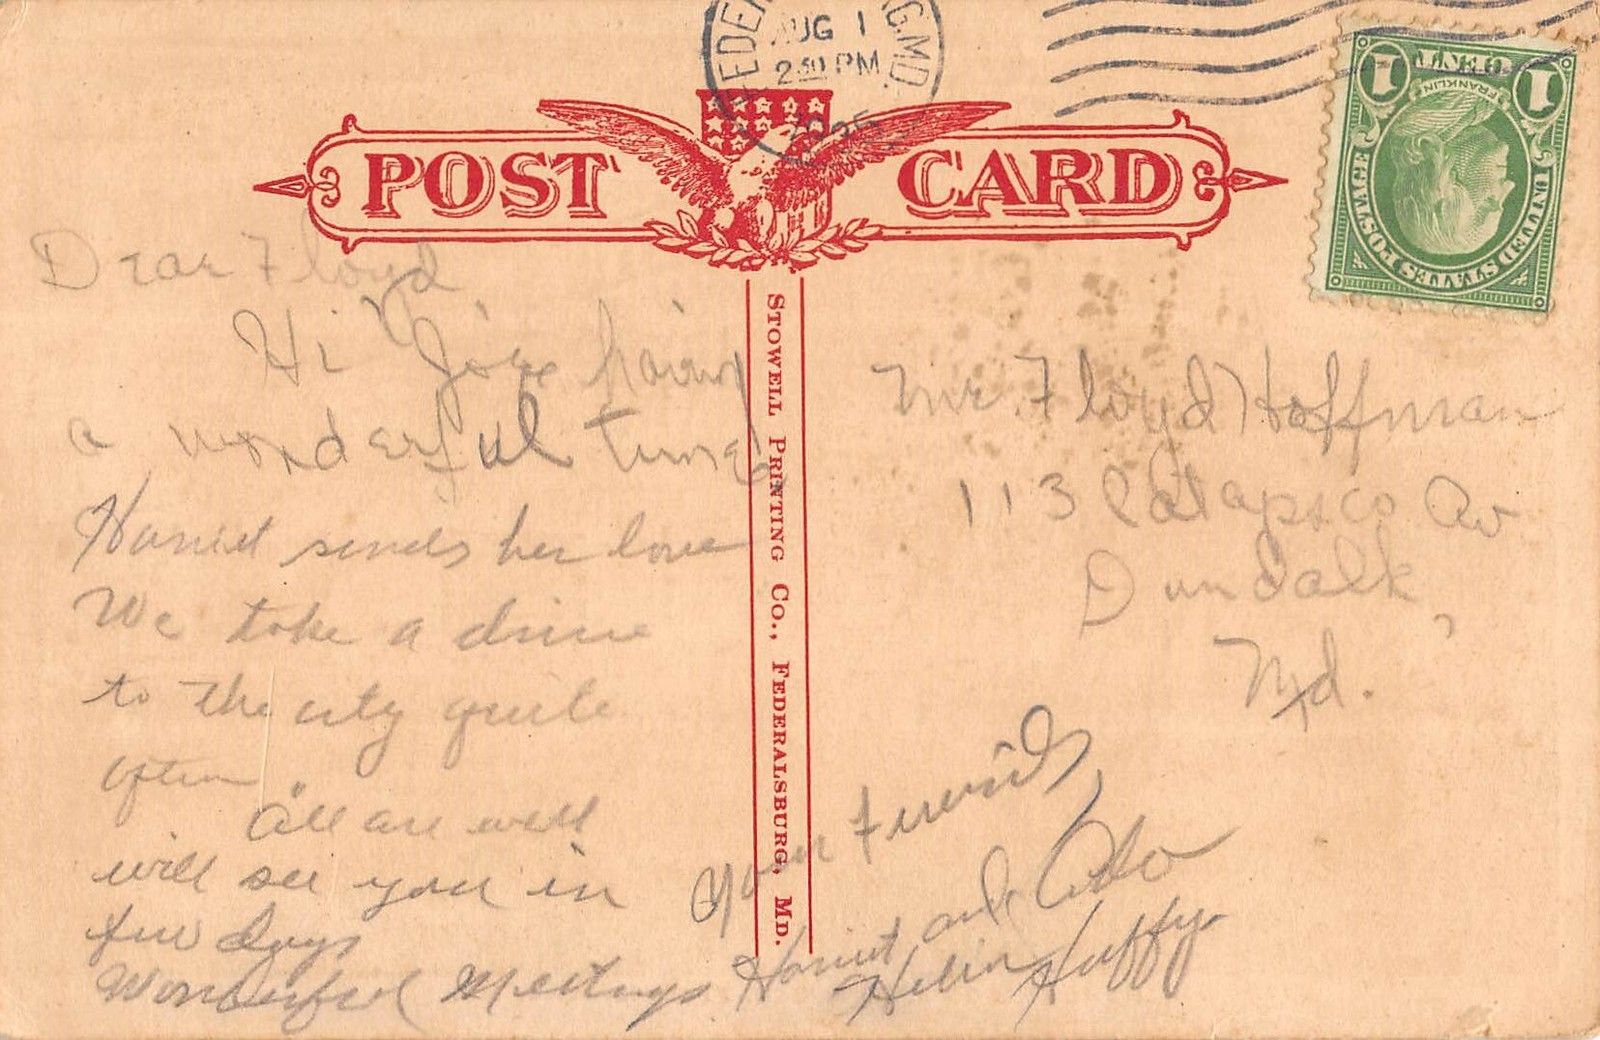 AUG 1
2 30 PM
1935
G, MD.
POST CARD
1 CENT 1
FRANKLIN
UNITED STATES POSTAGE
STOWELL PRINTING CO., FEDERALSBURG, MD.
Dear Floyd
Hi having
a wonderful time,
Harriet sends her love
We take a drive
to the city quite
often.
All are well
will see you in
few days
Wonderful Meetings.
Mr. Floyd Hoffman
113 Patapsco Av
Dundalk,
Md.
Your Friends,
Harriet and
Helen Huffy